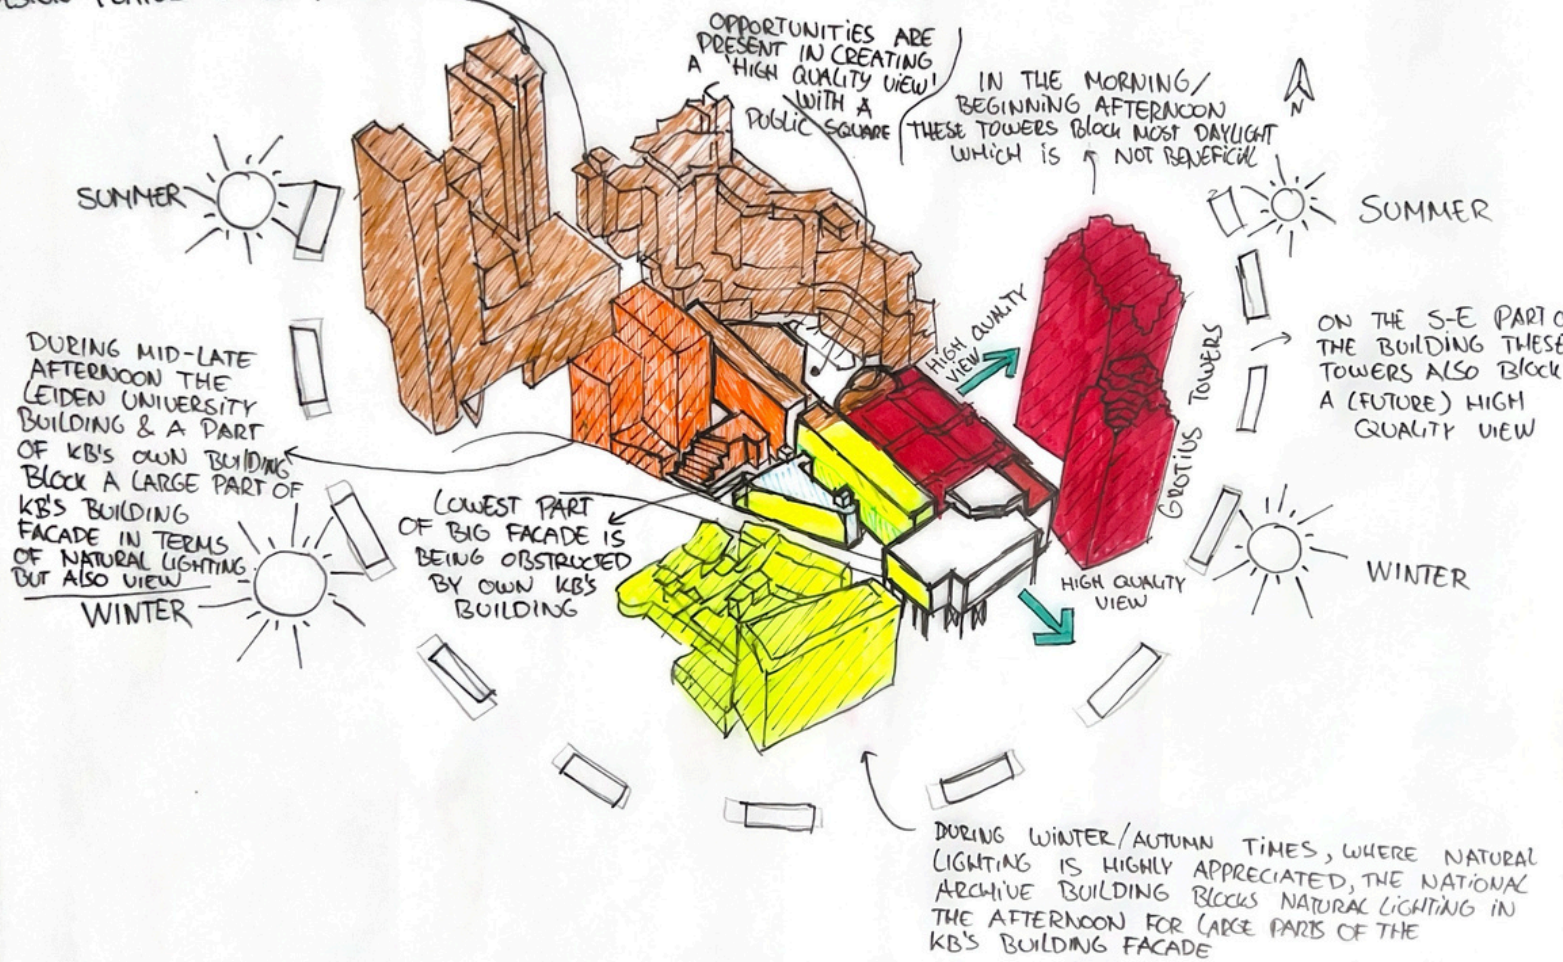 OPPORTUNITIES ARE
PRESENT IN CREATING
A 'HIGH QUALITY VIEW'
WITH A
PUBLIC SQUARE
IN THE MORNING/
BEGINNING AFTERNOON
THESE TOWERS BLOCK MOST DAYLIGHT
WHICH IS NOT BENEFICIAL
N
SUMMER
SUMMER
HIGH QUALITY
VIEW
GROTIUS TOWERS
ON THE S-E PART
THE BUILDING THESE
TOWERS ALSO BLOCK
A (FUTURE) HIGH
QUALITY VIEW
DURING MID-LATE
AFTERNOON THE
LEIDEN UNIVERSITY
BUILDING & A PART
OF KB'S OWN BUILDING
BLOCK A LARGE PART OF
KB'S BUILDING
FACADE IN TERMS
OF NATURAL LIGHTING
BUT ALSO VIEW
WINTER
LOWEST PART
OF BIG FACADE IS
BEING OBSTRUCTED
BY OWN KB'S
BUILDING
HIGH QUALITY
VIEW
WINTER
DURING WINTER/AUTUMN TIMES, WHERE NATURAL
LIGHTING IS HIGHLY APPRECIATED, THE NATIONAL
ARCHIVE BUILDING BLOCKS NATURAL LIGHTING IN
THE AFTERNOON FOR LARGE PARTS OF THE
KB'S BUILDING FACADE